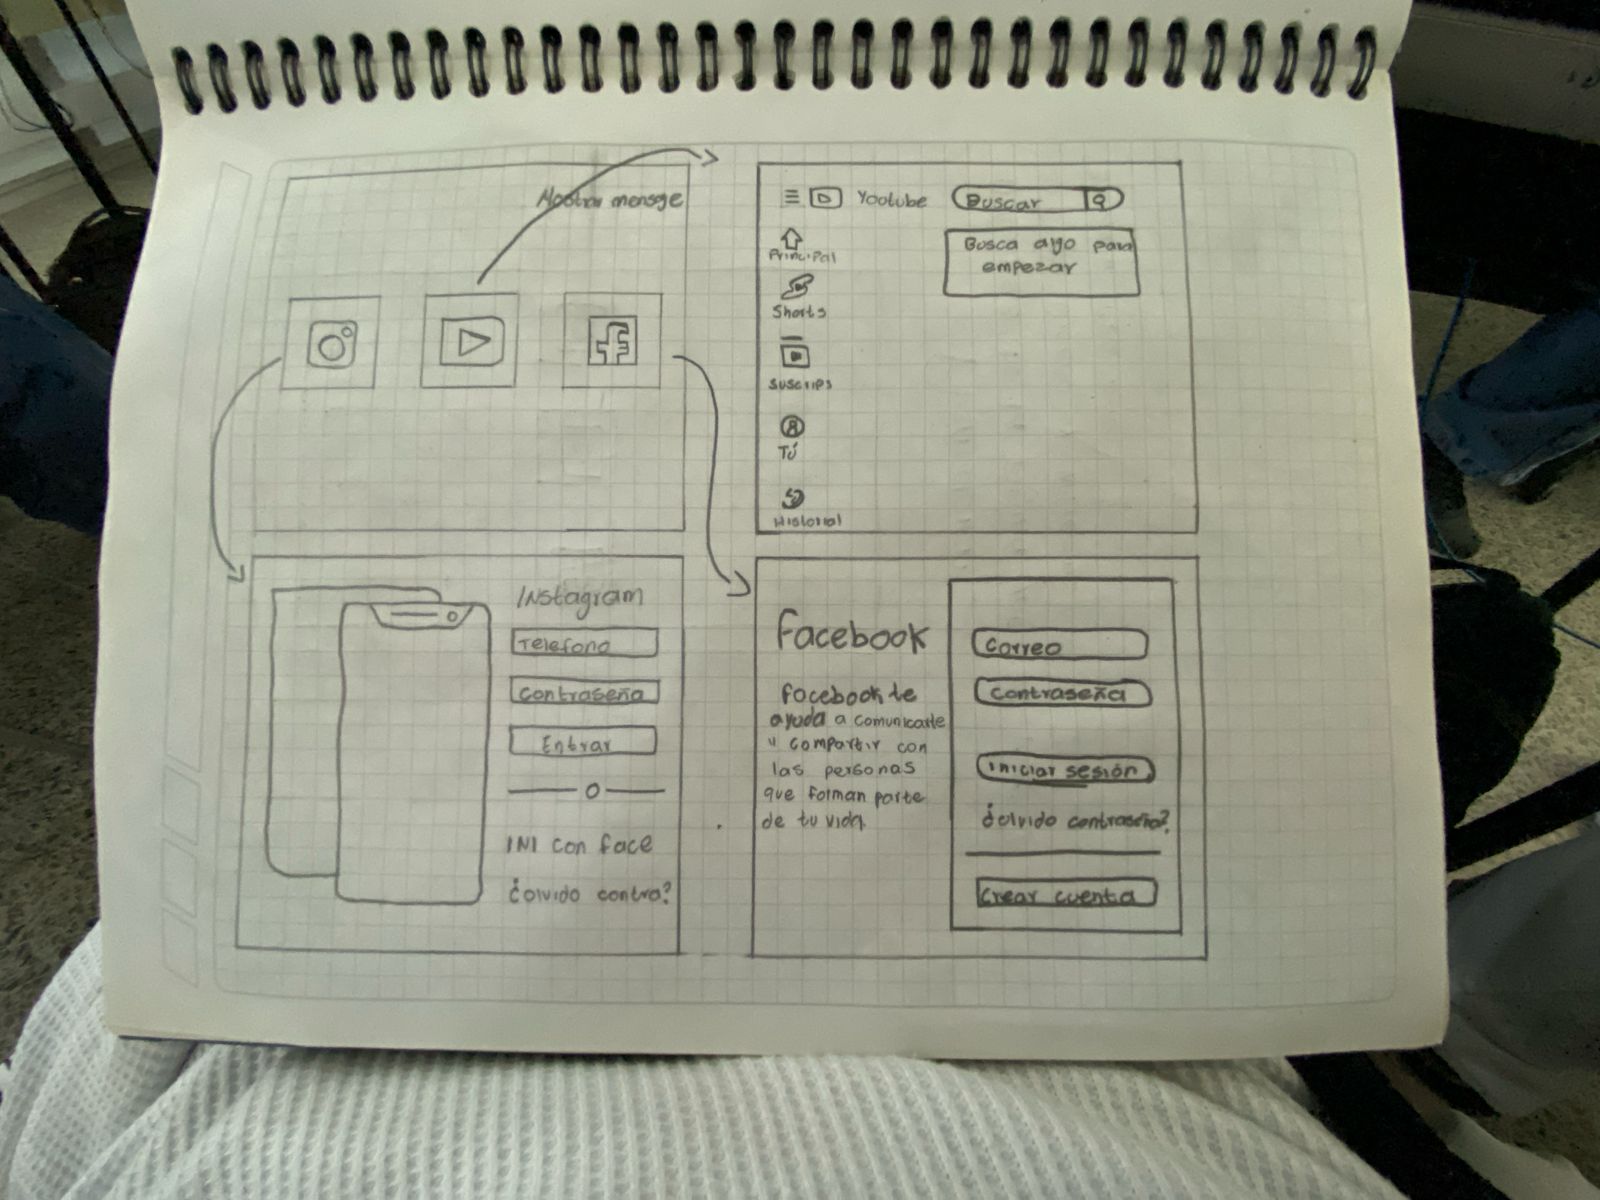 Mostrar mensge
Yootube
Buscar
Busca algo para
empezar
Principal
Shorts
suscrips
Tú
Historial
INstagram
Telefono
contraseña
Entrar
O
INI con face
¿olvido contra?
Facebook
Facebook te
ayuda a comunicarte
y compartir con
las personas
que forman parte
de tu vida.
Correo
contraseña
iniciar sesión
¿olvido contraseña?
crear cuenta